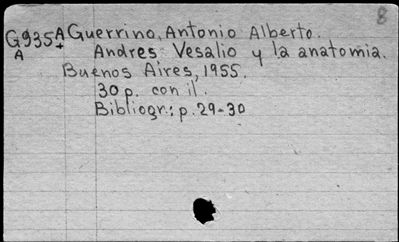 8
G935A Guerrino, Antonio Alberto.
A Andres Vesalio y la anatomia.
Buenos Aires, 1955.
30 p. con il.
Bibliogr.: p. 29-30